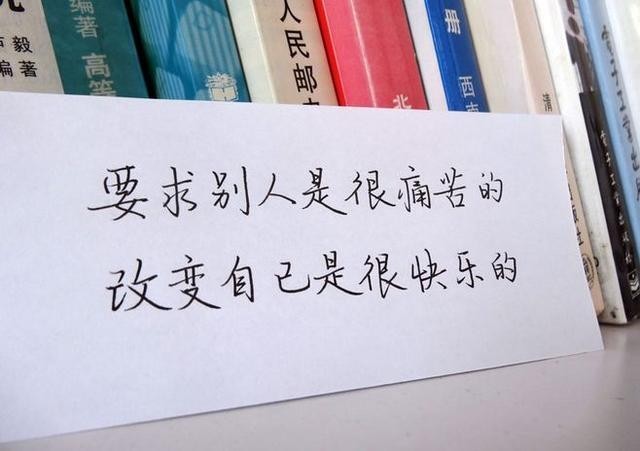 编著
卢毅
编著
高等
人民邮
北
册
西南
清
电子工业出
要求别人是很痛苦的
改变自己是很快乐的